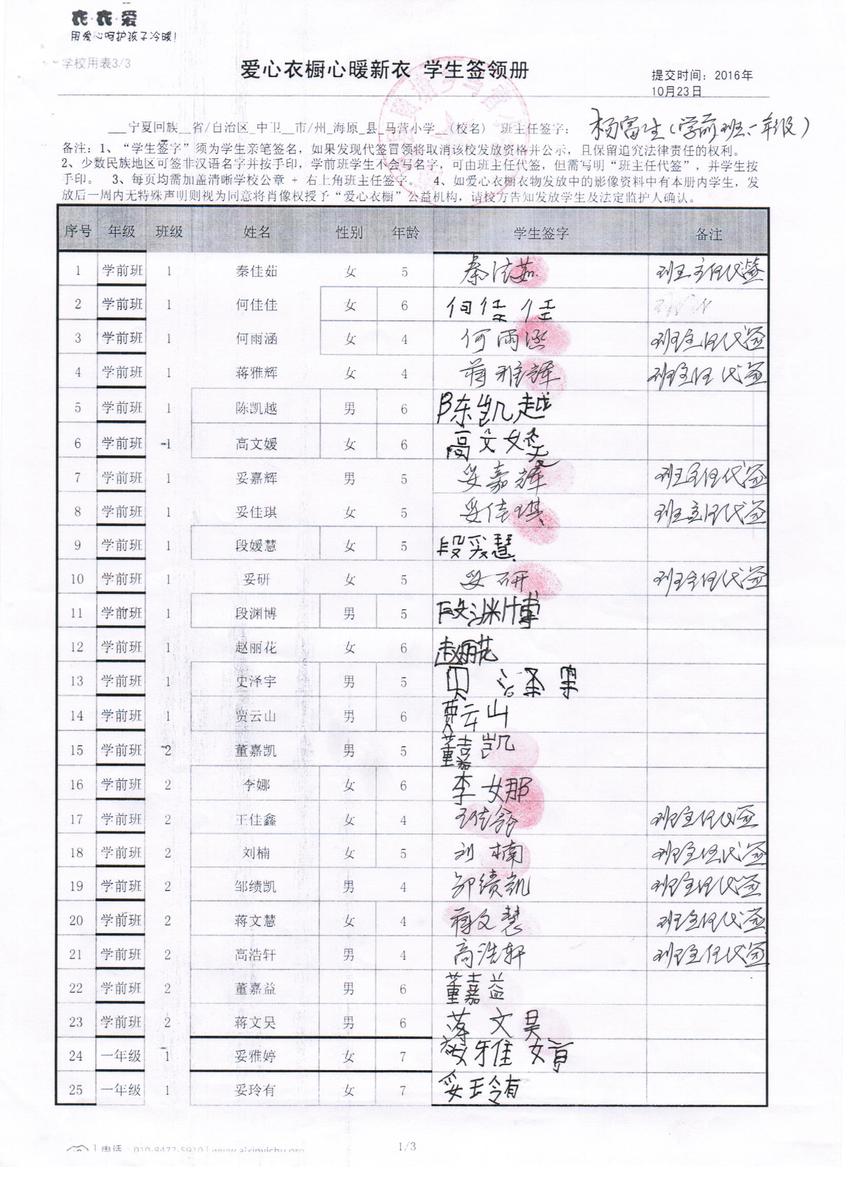 衣衣爱
用爱心呵护孩子冷暖!
学校用表3/3
爱心衣橱心暖新衣 学生签领册
提交时间: 2016年
10月23日
___宁夏回族__省/自治区_中卫__市/州_海原_县_马营小学__(校名) 班主任签字: 杨富生(学前班一年级)
备注: 1、“学生签字”须为学生亲笔签名, 如果发现代签冒领将取消该校发放资格并公示, 且保留追究法律责任的权利。
2、少数民族地区可签非汉语名字并按手印, 学前班学生不会写名字, 可由班主任代签, 但需写明“班主任代签”, 并学生按
手印。 3、每页均需加盖清晰学校公章 + 右上角班主任签字。 4、如爱心衣橱衣物发放中的影像资料中有本册内学生, 发
放后一周内无特殊声明则视为同意将肖像权授予“爱心衣橱”公益机构, 请校方告知发放学生及法定监护人确认。
序号 年级 班级 姓名 性别 年龄 学生签字 备注
1 学前班 1 秦佳茹 女 5 秦佳茹 班主任代签
2 学前班 1 何佳佳 女 6 何佳佳
3 学前班 1 何雨涵 女 4 何雨涵 班主任代签
4 学前班 1 蒋雅辉 女 4 蒋雅辉 班主任代签
5 学前班 1 陈凯越 男 6 陈凯越
6 学前班 1 高文媛 女 6 高文媛
7 学前班 1 妥嘉辉 男 5 妥嘉辉 班主任代签
8 学前班 1 妥佳琪 女 5 妥佳琪 班主任代签
9 学前班 1 段媛慧 女 5 段采慧
10 学前班 1 妥研 女 5 妥研 班主任代签
11 学前班 1 段渊博 男 5 段渊博
12 学前班 1 赵丽花 女 6 赵丽花
13 学前班 1 史泽宇 男 5
14 学前班 1 贾云山 男 6 贾云山
15 学前班 2 董嘉凯 男 5 董嘉凯
16 学前班 2 李娜 女 6 李娜
17 学前班 2 王佳鑫 女 4 王佳鑫 班主任代签
18 学前班 2 刘楠 女 5 刘楠 班主任代签
19 学前班 2 邹绩凯 男 4 邹绩凯 班主任代签
20 学前班 2 蒋文慧 女 4 蒋文慧 班主任代签
21 学前班 2 高浩轩 男 4 高浩轩 班主任代签
22 学前班 2 董嘉益 男 6 董嘉益
23 学前班 2 蒋文昊 男 6 蒋文昊
24 一年级 1 妥雅婷 女 7 妥雅婷
25 一年级 1 妥玲有 女 7 妥玲有
1/3